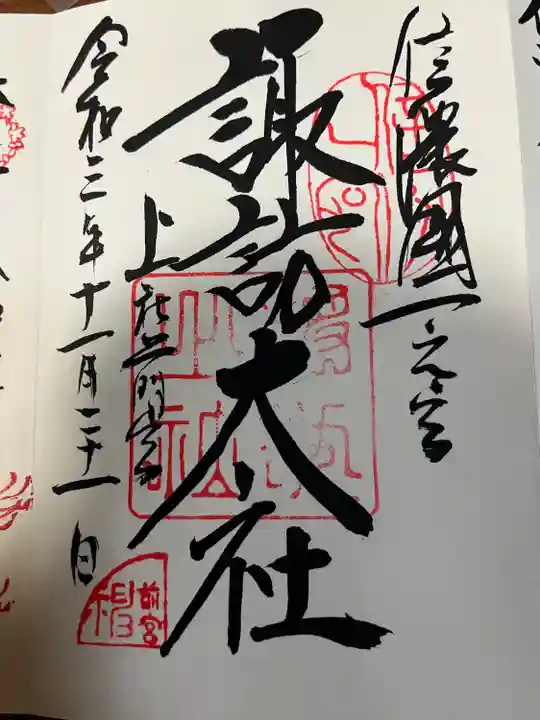 信濃國一之宮
諏訪大社
上社前宮
令和三年十一月二十一日
前宮